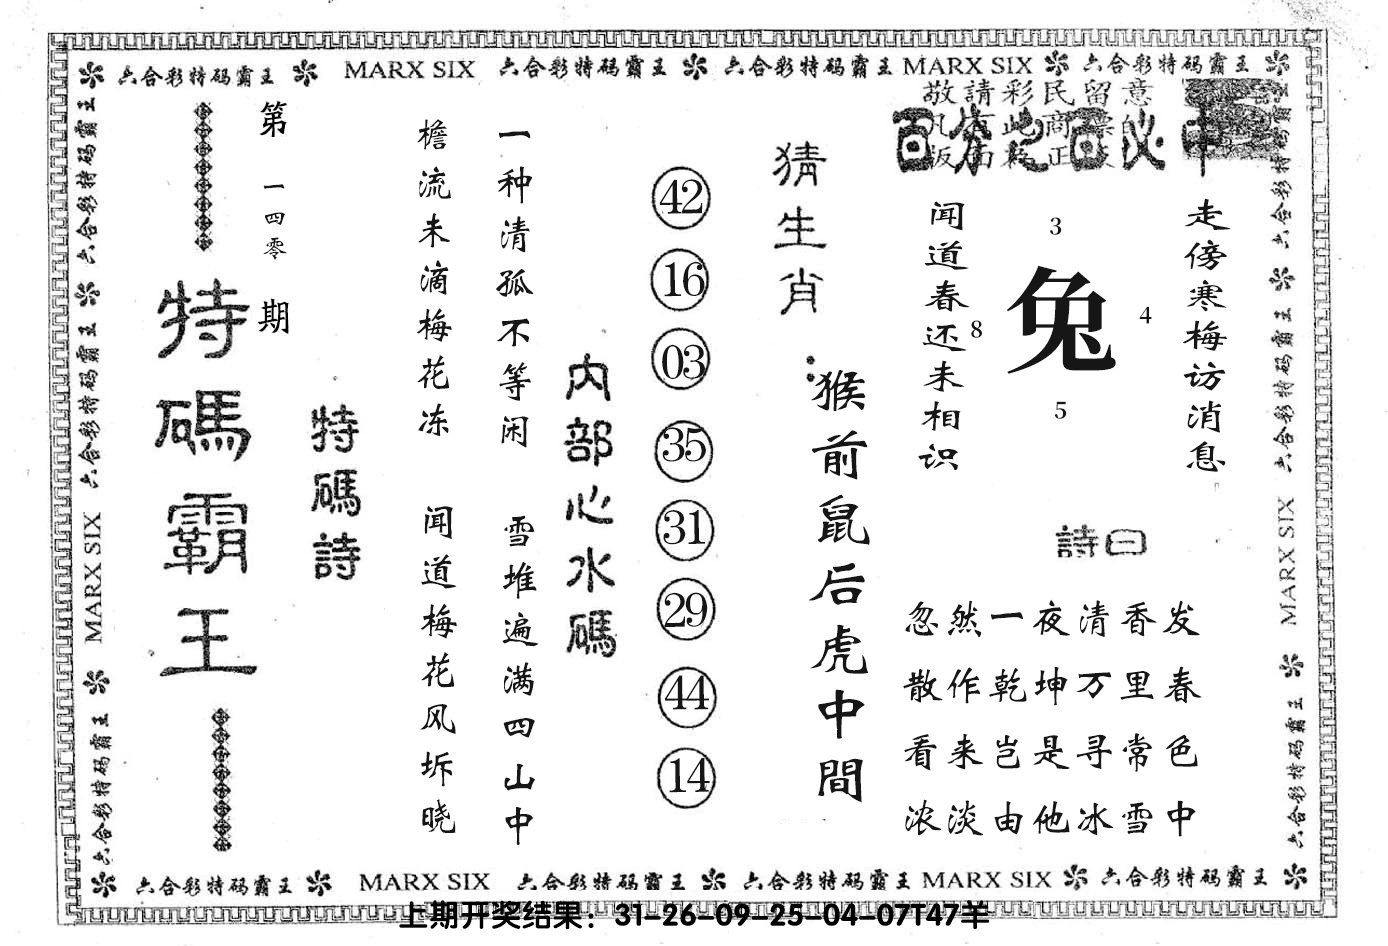 六合彩特码霸王 MARX SIX 六合彩特码霸王 六合彩特码霸王 MARX SIX 六合彩特码霸王
敬請彩民留意
百分之百必中
走傍寒梅访消息
闻道春还未相识
3
8
兔
4
5
詩曰
忽然一夜清香发
散作乾坤万里春
看来岂是寻常色
浓淡由他冰雪中
猜生肖:
猴前鼠后虎中間
42
16
03
35
31
29
44
14
内部心水碼
一种清孤不等闲
雪堆遍满四山中
檐流未滴梅花冻
闻道梅花风坼晓
特碼詩
第一四零期
特碼霸王
六合彩特码霸王 六合彩特码霸王 MARX SIX 六合彩特码霸王
六合彩特码霸王 六合彩特码霸王 MARX SIX 六合彩特码霸王
六合彩特码霸王 MARX SIX 六合彩特码霸王 六合彩特码霸王 MARX SIX 六合彩特码霸王
上期开奖结果：31-26-09-25-04-07T47羊